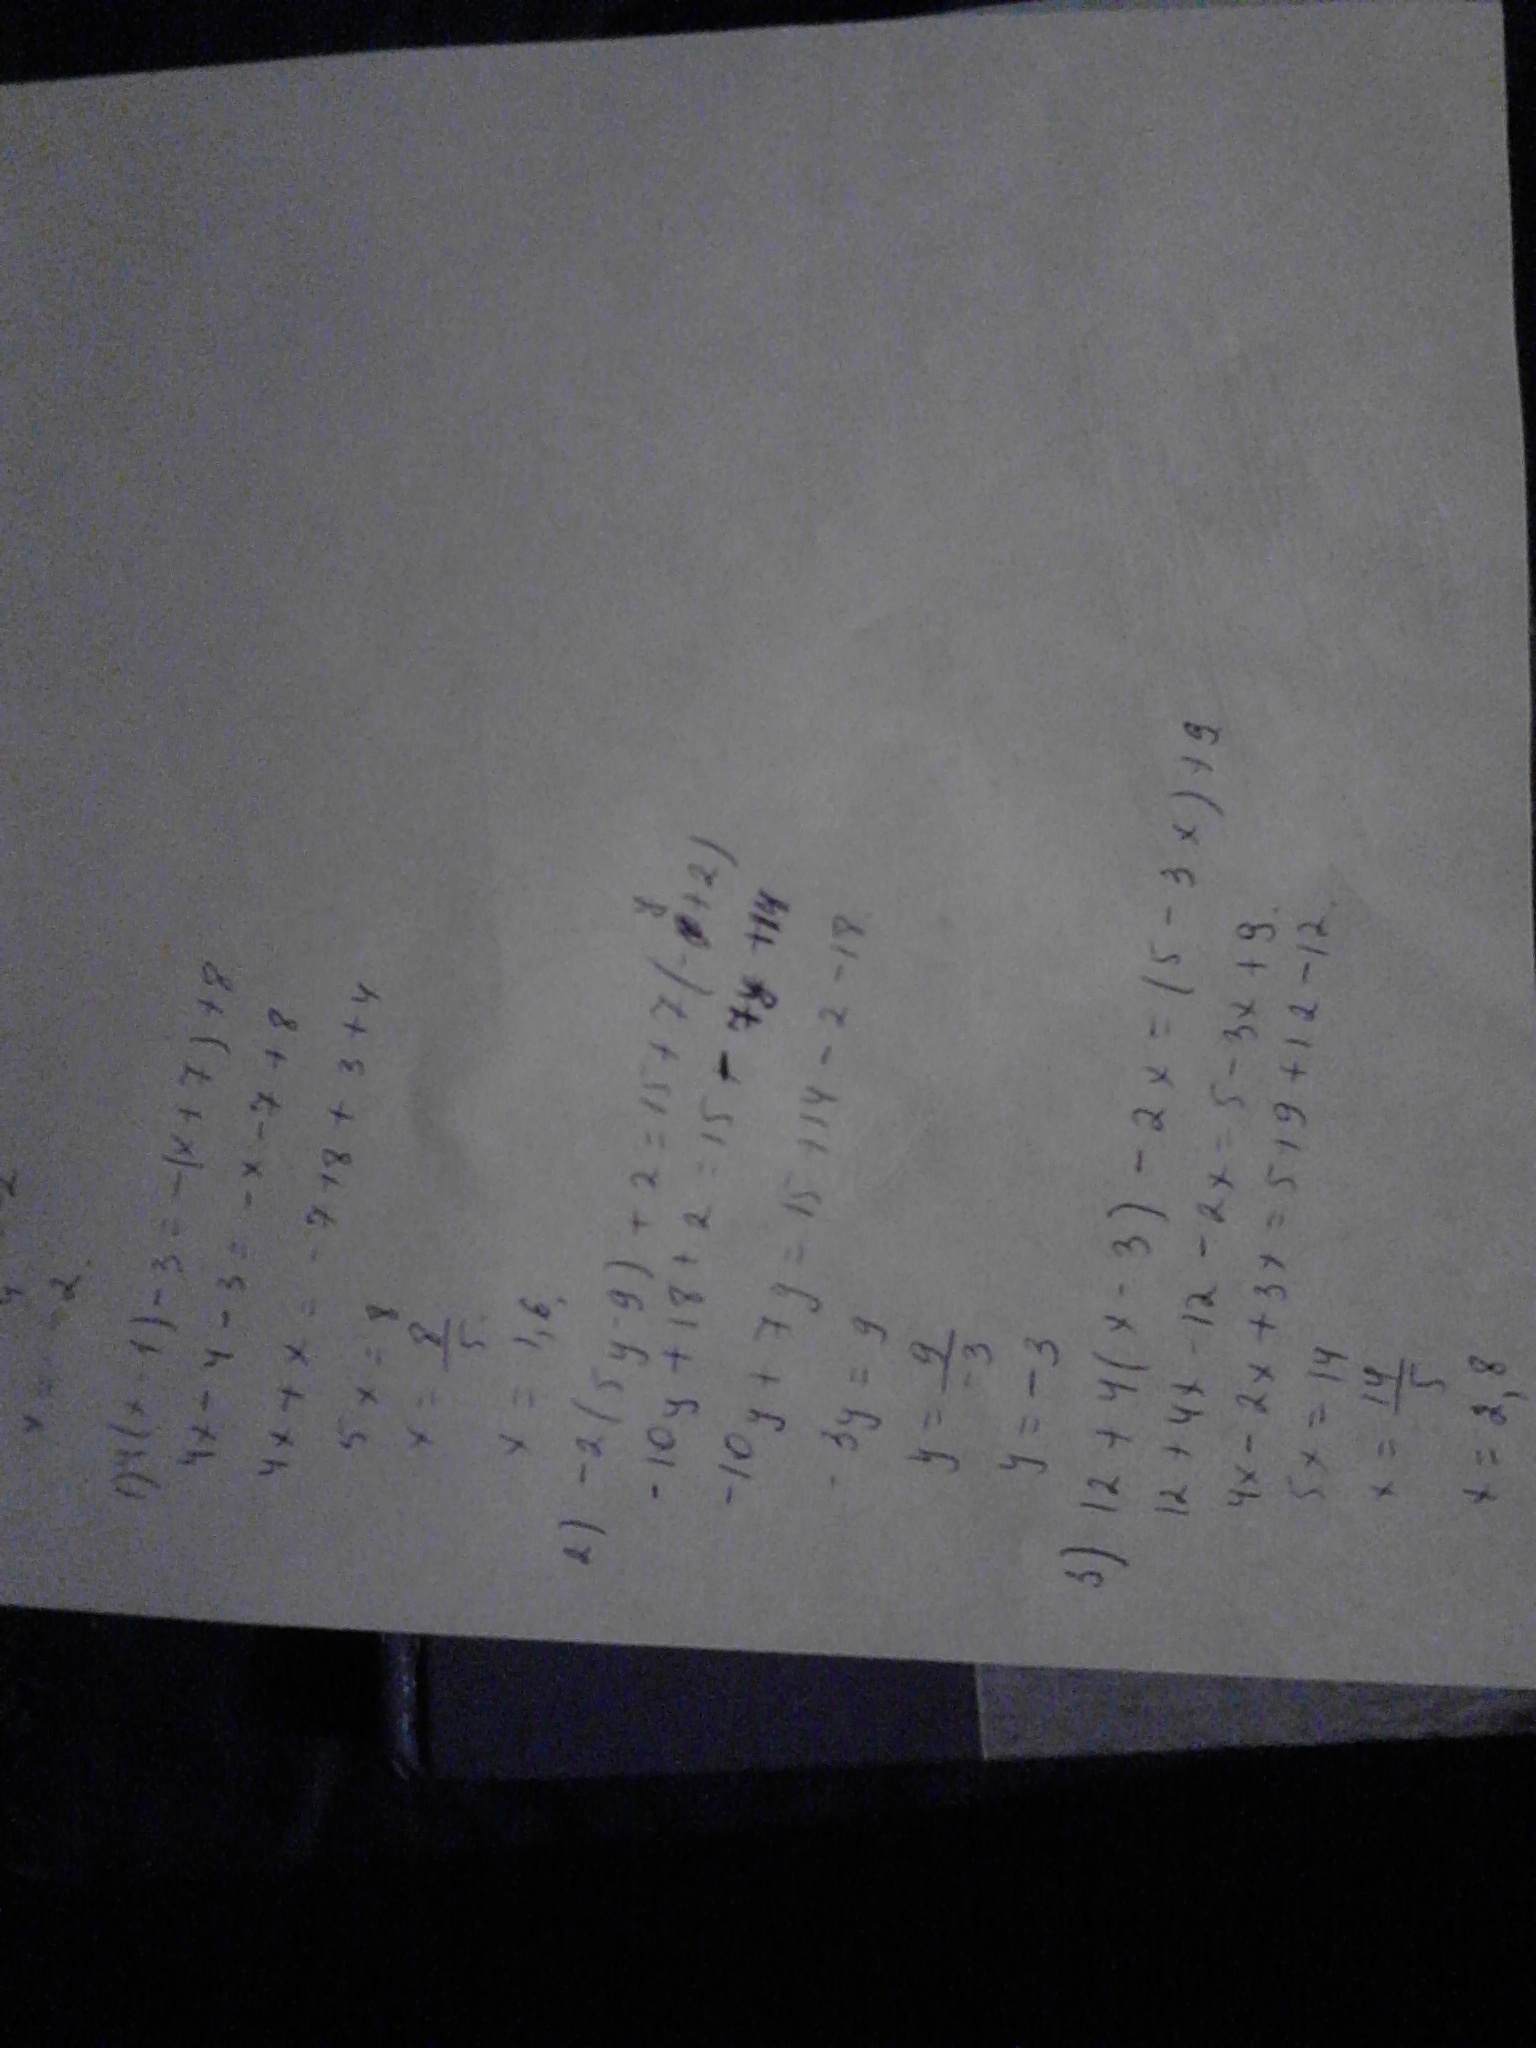 x = -2.
1) 4(x-1)-3=-(x+7)+8
4x-4-3=-x-7+8
4x+x=-7+8+3+4
5x=8
x=8/5
x=1,6.
2) -2(5y-9)+2=15+7(-y+2)
-10y+18+2=15-7y+14
-10y+7y=15+14-2-18
-3y=9
y=9/-3
y=-3
3) 12+4(x-3)-2x=(5-3x)+9
12+4x-12-2x=5-3x+9.
4x-2x+3x=5+9+12-12.
5x=14
x=14/5
x=2,8